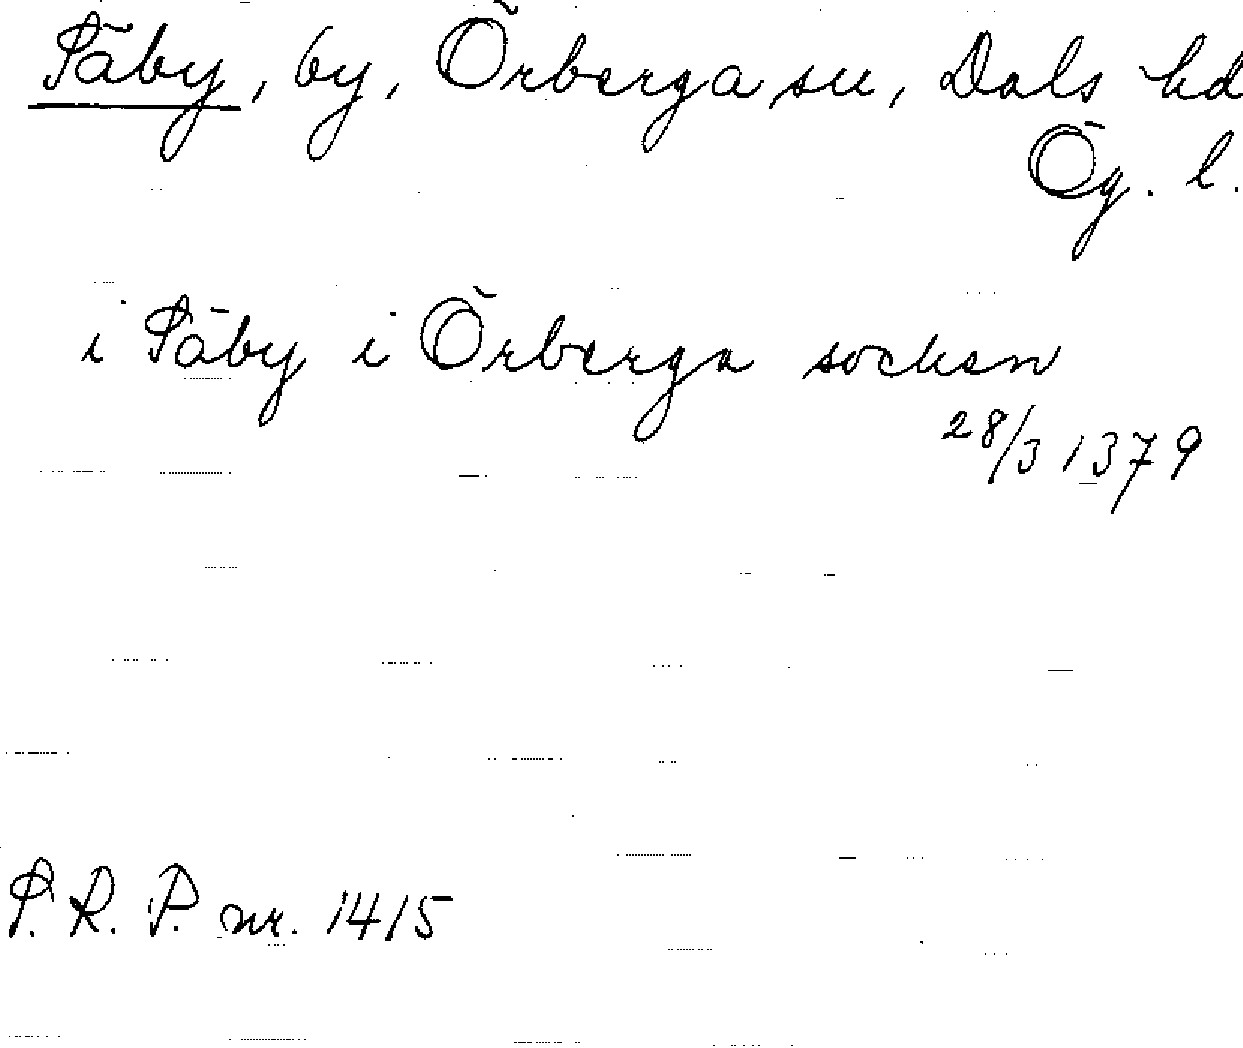 Säby, by, Örberga sn, Dals hd
Ög. l.
i Säby i Örberga socken
28/3 1379
S. R. P. nr. 1415